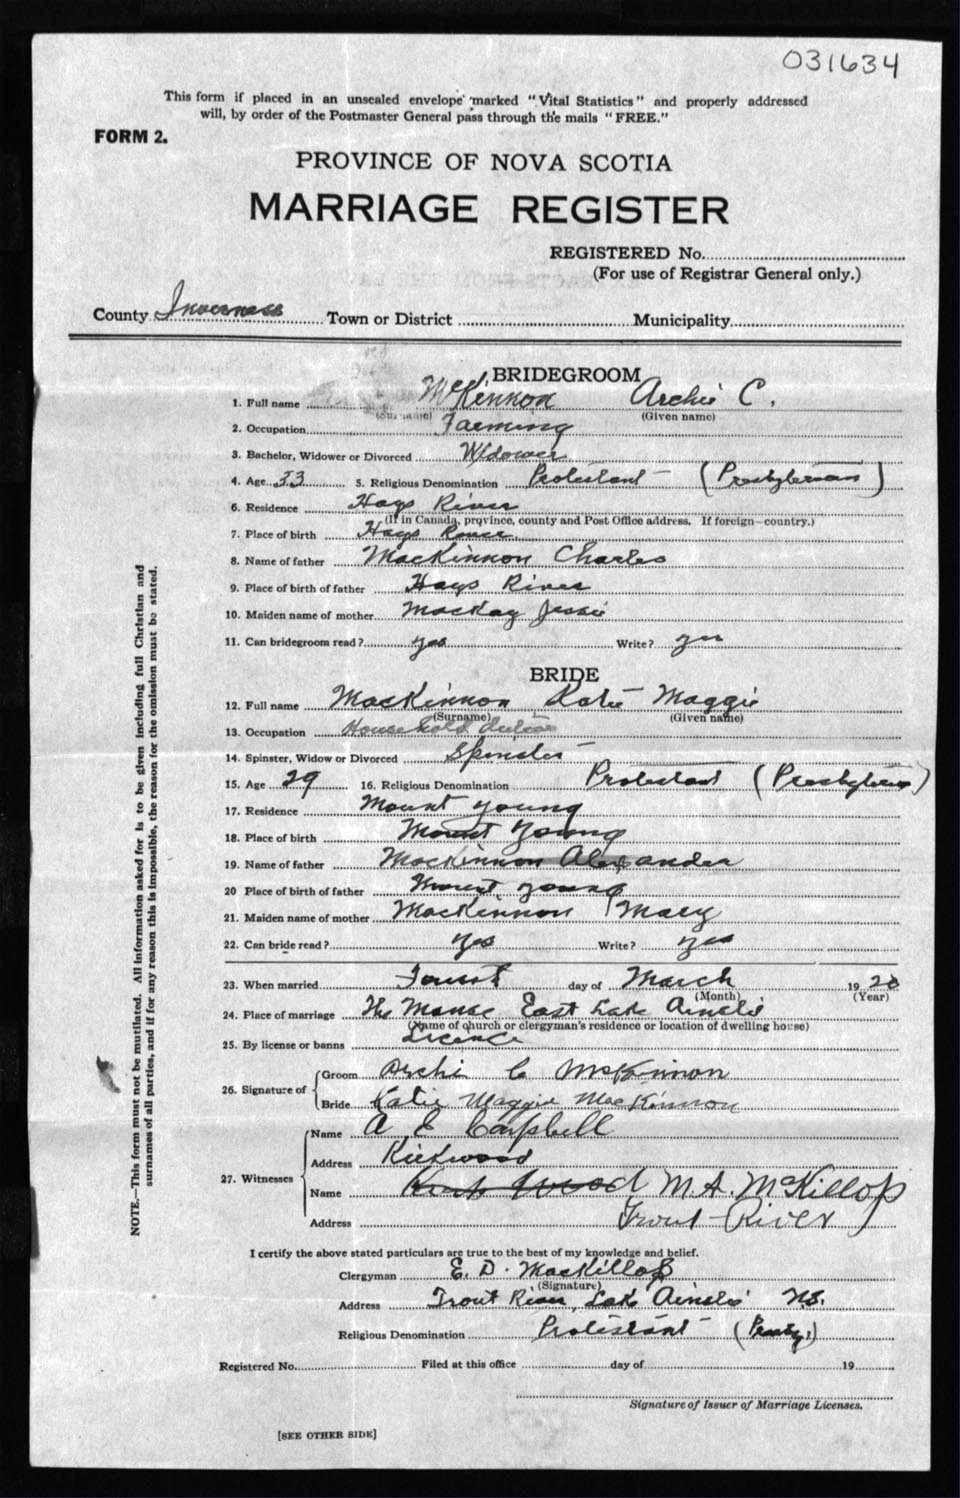 031634
This form if placed in an unsealed envelope marked "Vital Statistics" and properly addressed
will, by order of the Postmaster General pass through the mails "FREE."
FORM 2.
PROVINCE OF NOVA SCOTIA
MARRIAGE REGISTER
REGISTERED No.
(For use of Registrar General only.)
County Inverness Town or District Municipality
BRIDEGROOM
1. Full name McKinnon Archie C.
(Surname) (Given name)
2. Occupation Farming
3. Bachelor, Widower or Divorced Widower
4. Age 33 5. Religious Denomination Protestant (Presbyterian)
6. Residence Hays River
(If in Canada, province, county and Post Office address. If foreign—country.)
7. Place of birth Hays River
8. Name of father MacKinnon Charles
9. Place of birth of father Hays River
10. Maiden name of mother MacKay Jessie
11. Can bridegroom read? yes Write? yes
BRIDE
12. Full name MacKinnon Katie Maggie
(Surname) (Given name)
13. Occupation Household duties
14. Spinster, Widow or Divorced Spinster
15. Age 29 16. Religious Denomination Protestant (Presbyterian)
17. Residence Mount Young
18. Place of birth Mount Young
19. Name of father MacKinnon Alexander
20 Place of birth of father Mount Young
21. Maiden name of mother MacKinnon Mary
22. Can bride read? Yes Write? Yes
23. When married day of March 19
(Month) (Year)
24. Place of marriage The Manse East Lake Ainslie
(Name of church or clergyman's residence or location of dwelling house)
25. By license or banns Licence
26. Signature of Groom Archi C McKinnon
Bride Katie Maggie MacKinnon
27. Witnesses Name A E Campbell
Address Kirkwood
Name Kirkwood M.A. McKillop
Address Trout River
I certify the above stated particulars are true to the best of my knowledge and belief.
Clergyman E. D. MacKillop
(Signature)
Address Trout River, Lake Ainslie N.S.
Religious Denomination Protestant (Presby.)
Registered No. Filed at this office day of 19
Signature of Issuer of Marriage Licenses.
[SEE OTHER SIDE]
NOTE.—This form must not be mutilated. All information asked for is to be given including full Christian and
surnames of all parties, and if for any reason this is impossible, the reason for the omission must be stated.